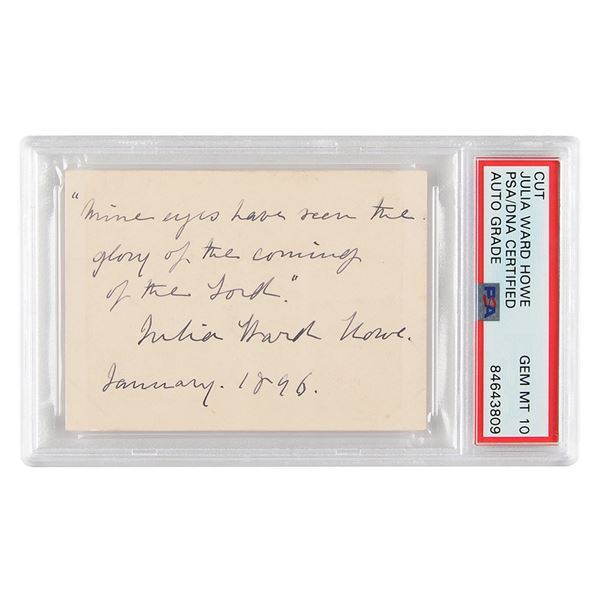 "Mine eyes have seen the
glory of the coming
of the Lord."
Julia Ward Howe.
January. 1896.
CUT
JULIA WARD HOWE
PSA/DNA CERTIFIED
AUTO GRADE
PSA
GEM MT 10
84643809